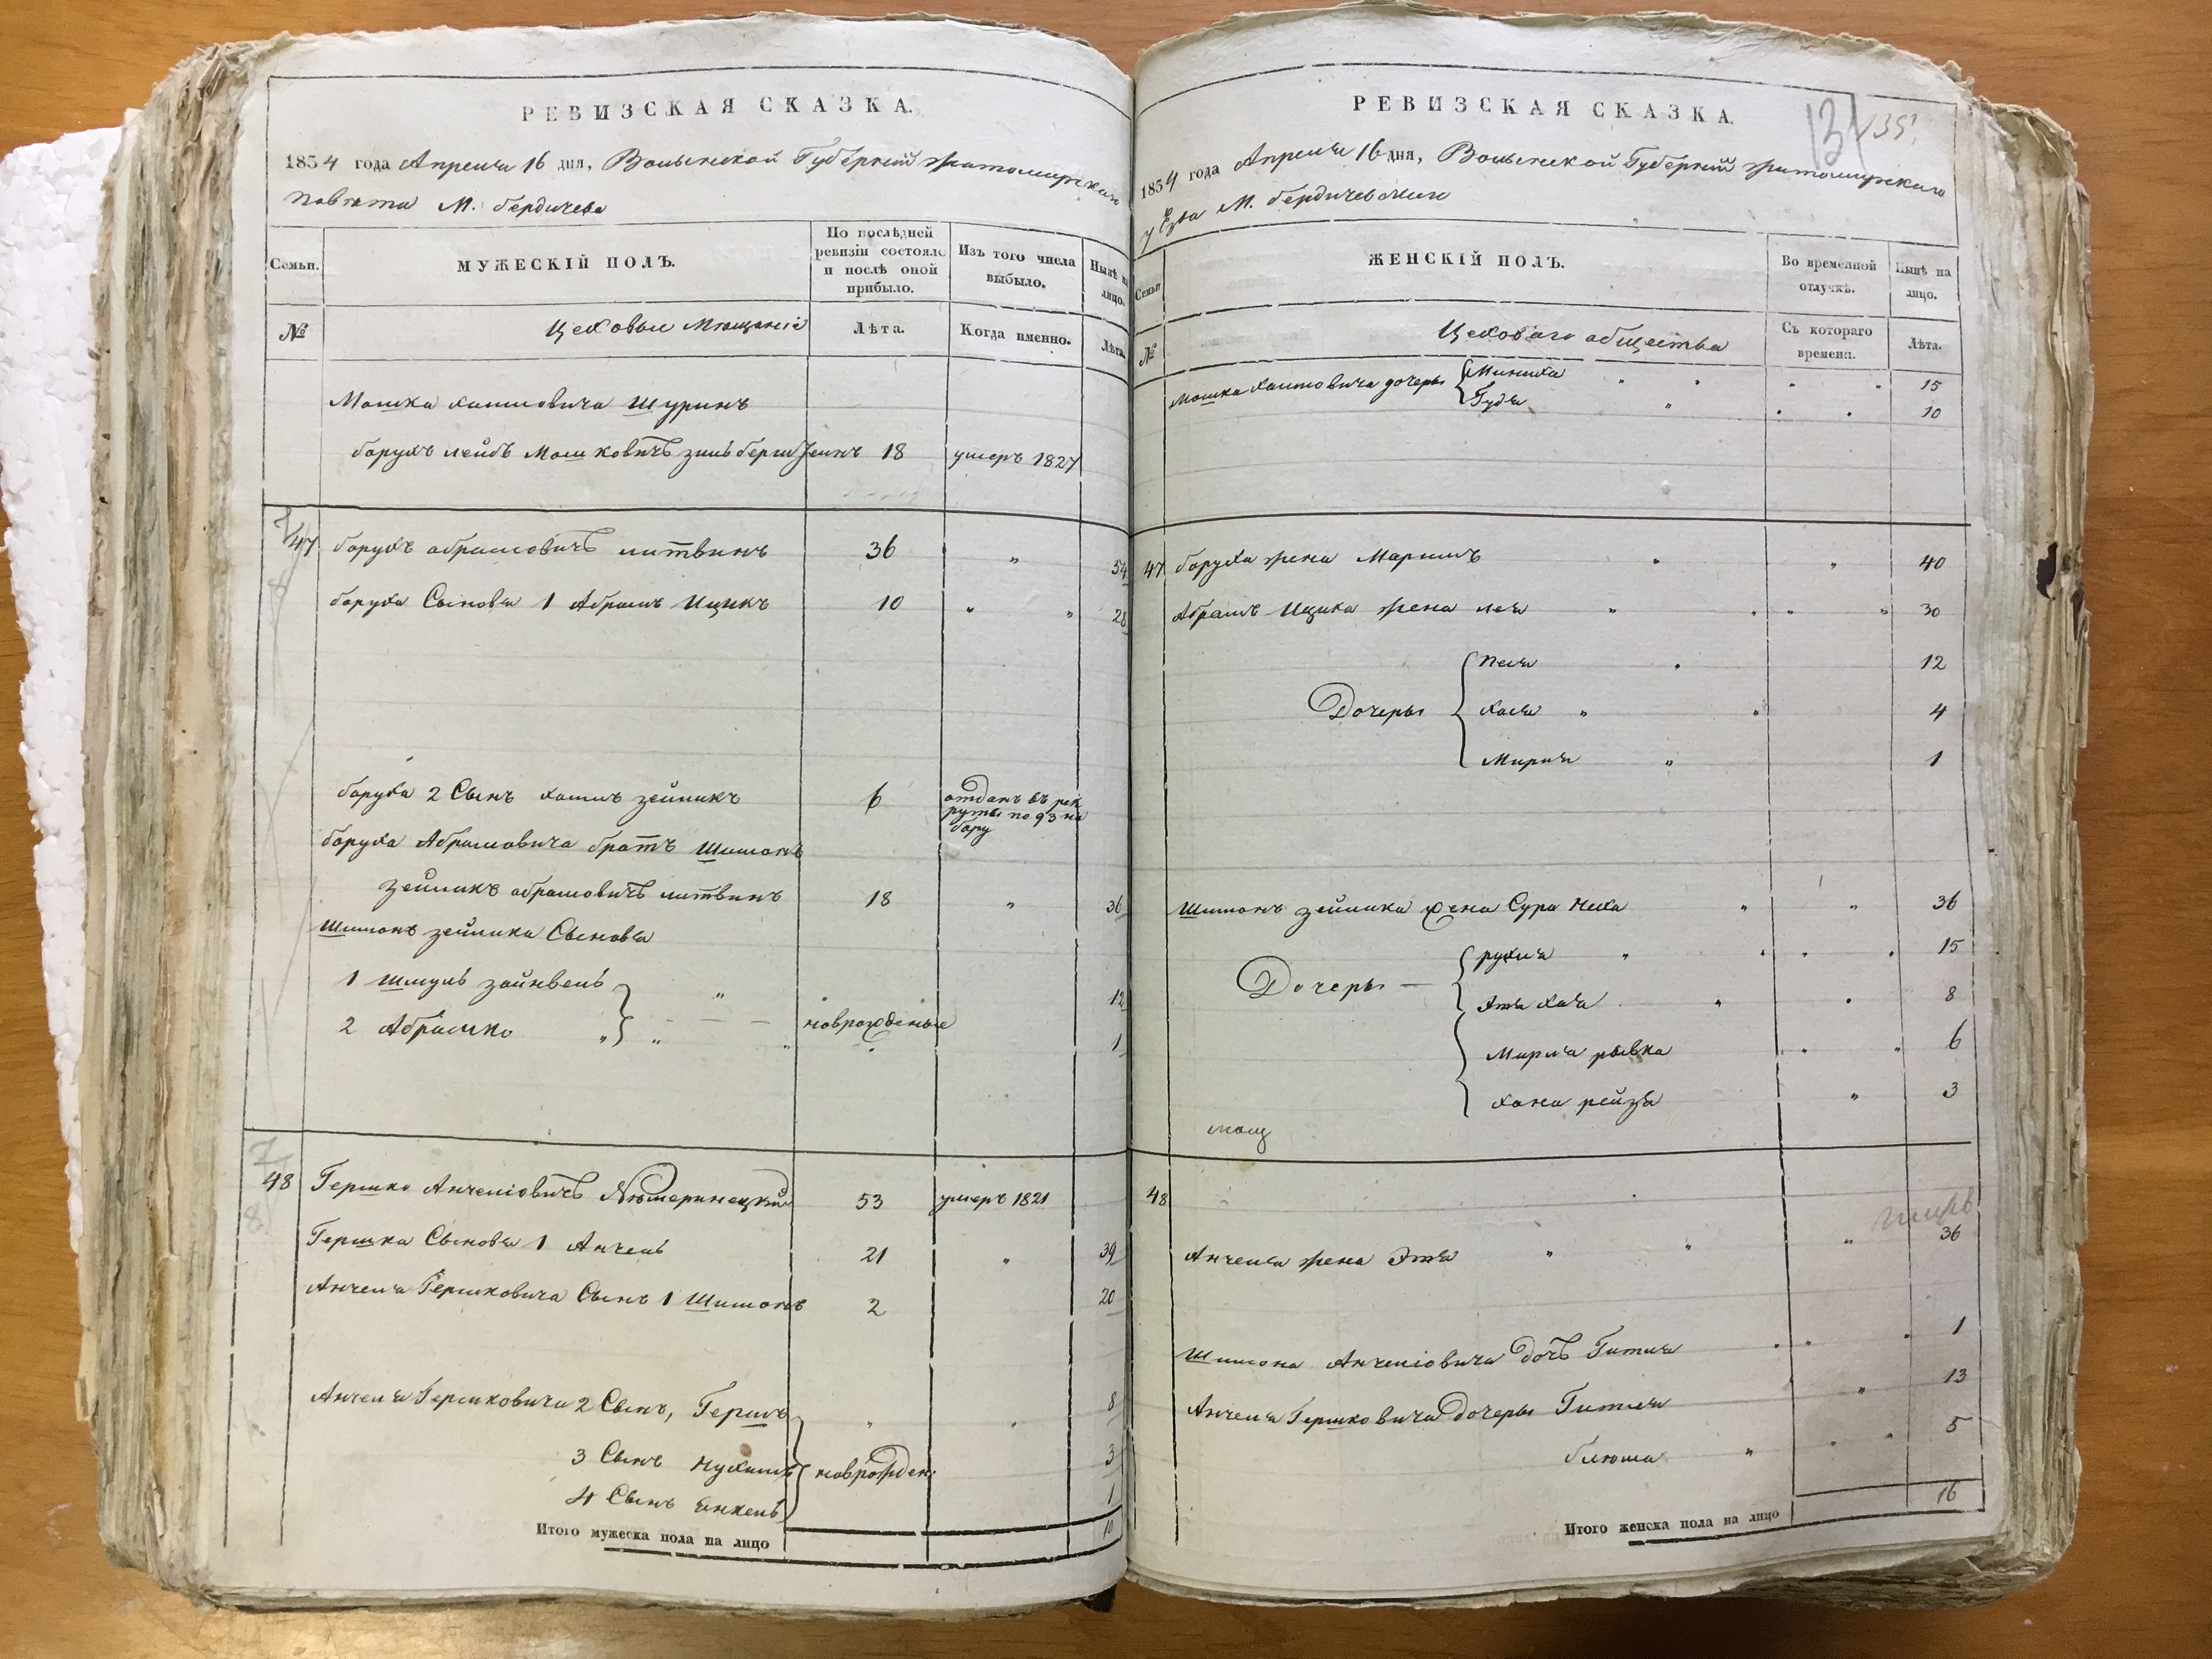 РЕВИЗСКАЯ СКАЗКА.
1834 года Апреля 16 дня, Волынской Губерний Житомирскаго
Повѣта М. бердичева
Семьи.
МУЖЕСКІЙ ПОЛЪ.
По послѣдней ревизіи состояло и послѣ оной прибыло.
Изъ того числа выбыло.
Нынѣ на лицо.
№
Цеховыи Мѣщаніе
Лѣта.
Когда именно.
Лѣта.
Мошка хаимовича Шуринъ
борухъ лейбъ Мошковичъ 18 умеръ 1827
47 борухъ абрамовичъ литвинъ 36 " 54
боруха Сыновя 1 Абрамъ Ицикъ 10 " " 28
боруха 2 Сынъ хаимъ зейликъ 6 отданъ въ рек
руты по 93 на
бору
боруха Абрамовича братъ Шимонъ
зейликъ абрамовичъ литвинъ 18 " 36
Шимонъ зейлика Сыновя
1 Шмуль зайнвель " 12
2 Абрамко " " новрожденые 1
48 Гершко Анчеліовичъ 53 умеръ 1821
Гершка Сыновя 1 Анчель 21 " 39
Анчеля Гершковича Сынъ 1 Шимонъ 2 20
Анчеля Гершковича 2 Сынъ, Гершъ " " 8
3 Сынъ нухимъ новрожден: 3
4 Сынъ янкель 1
Итого мужеска пола на лицо 10
РЕВИЗСКАЯ СКАЗКА.
131
135
1834 года Апреля 16 дня, Волынской Губерний Житомирскаго
у Езда М. бердичев
Семьи
ЖЕНСКІЙ ПОЛЪ.
Во временной отлучкѣ.
Нынѣ на лицо.
№
Цеховаго общества
Съ котораго времени.
Лѣта.
Мошка хаимовича дочеры Миниха " " " " 15
Гудя " " " 10
47 боруха жена Маримъ " " 40
Абрамъ Ицика жена лея " " " " 30
Дочеры песя " 12
хася " " 4
Мирля " 1
Шимонъ зейлика жена Сура неха " " 36
Дочеры — рухля " " " " 15
Этя хая " " 8
Мирля рывка " " 6
хана рейзя " 3
мощ
48
Анчеля жена Этя " " " 36
Шимона Анчеліовича дочъ Гитля " " " 1
Анчеля Гершковича дочеры Гитля " 13
блюма " " " 5
Итого женска пола на лицо 16